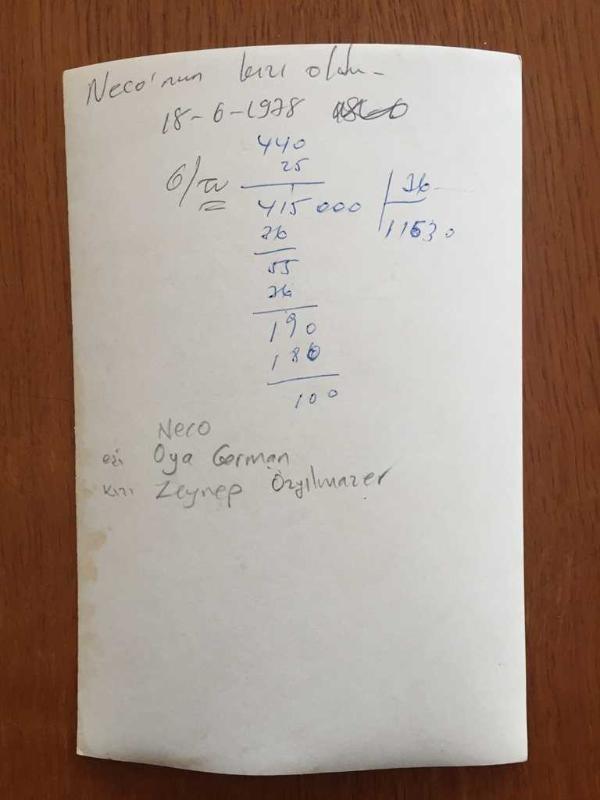 Neco'nun kızı oldu-
18-6-1978
440
25
6/
415000
36
11530
36
55
36
190
180
100
Neco
eşi Oya German
kızı Zeynep Özyılmazer